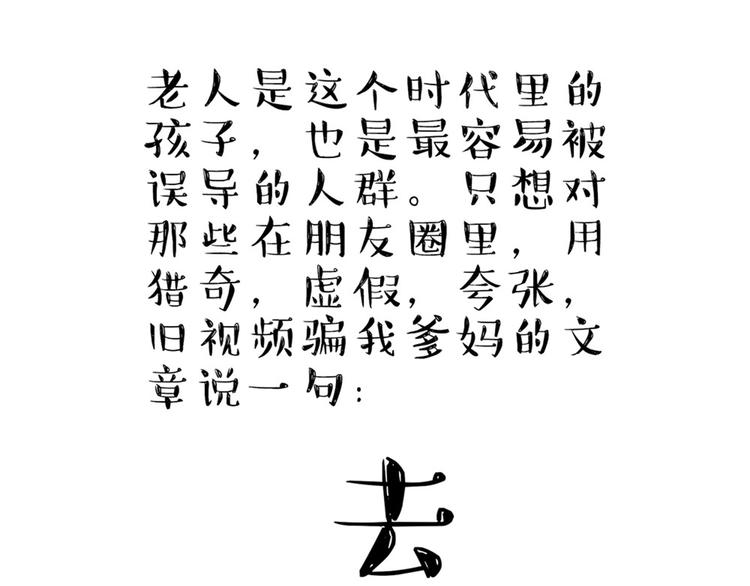 老人是这个时代里的
孩子，也是最容易被
误导的人群。只想对
那些在朋友圈里，用
猎奇，虚假，夸张，
旧视频骗我爹妈的文
章说一句：
去